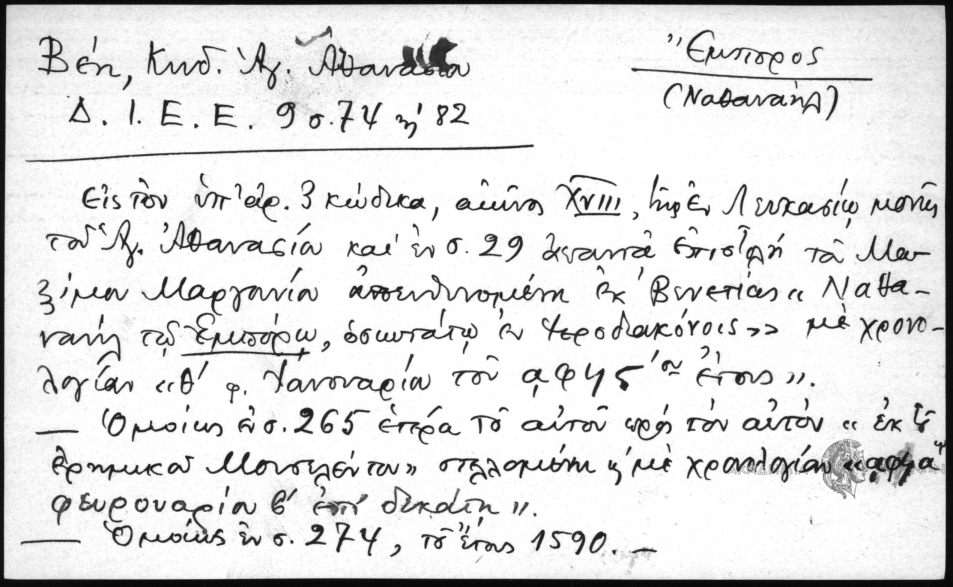 Βέη, Κωδ. Ἁγ. Ἀθανασία
Ἔμπορος
(Ναθαναήλ)
Δ. Ι. Ε. Ε. 9 σ. 74 ἢ 82
Εἰς τὸν ὑπ' ἀρ. 3 κώδικα, αἰῶνος XVIII, τῆς ἐν Λευκασίῳ μονῆς
τοῦ Ἁγ. Ἀθανασίου καὶ ἐν σ. 29 ἀπαντᾷ ἐπιστολὴ τοῦ Μα-
ξίμου Μαργουνίου ἀπευθυνομένη ἐκ Βενετίας « Ναθα-
ναὴλ τῷ Ἐμπόρῳ, ὁσιωτάτῳ ἐν Ἱεροδιακόνοις» μὲ χρονο-
λογίαν «θ' φ. Ἰανουαρίου τοῦ ͵αφϟϛ´ου ἔτους».
— Ὁμοίως ἐν σ. 265 ἑτέρα τοῦ αὐτοῦ πρὸς τὸν αὐτὸν « ἐκ τοῦ
ἐρημικοῦ στελλομένη μὲ χρονολογίαν «͵αφϟα ῳ
φευρουαρίου ἐπὶ δεκάτῃ».
— Ὁμοίως ἐν σ. 274, τοῦ ἔτους 1590. —